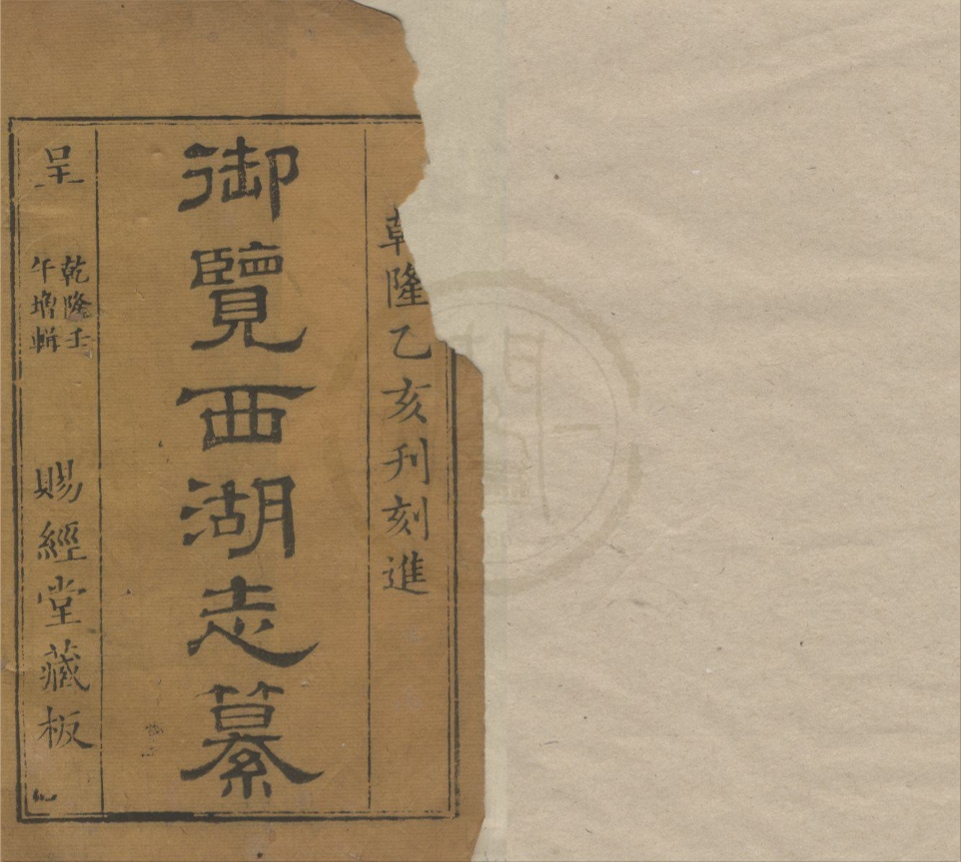 乾隆乙亥刊刻進
御覽西湖志纂
呈
乾隆壬
午增輯
賜經堂藏板